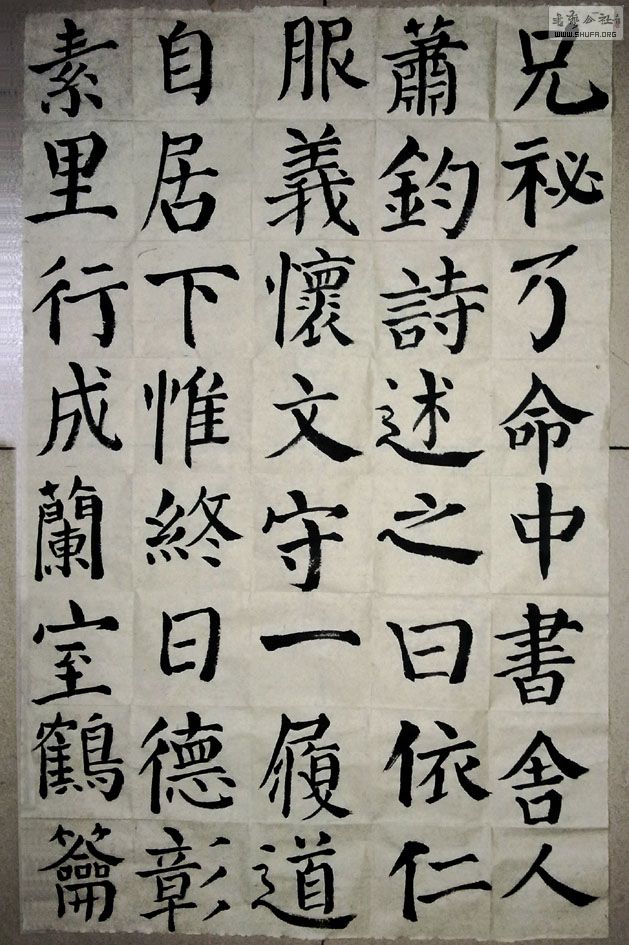 兄祕乃命中書舍人
蕭鈞詩述之曰依仁
服義懷文守一履道
自居下惟終日德彰
素里行成蘭室鶴籥
書藝公社
WWW.SHUFA.ORG